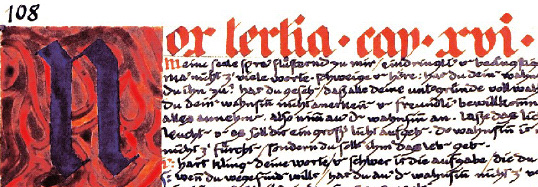 108
Nox tertia. cap. xvi.
meine seele spra flüsternd zu mir, eindringli v beängstig
ma nicht z viele worte. schweige v höre: has du dein wahn
du ihn zu? has du geseh, daß alle deine untergründe voll wah
du dein wahnsin nicht anerkennen v freundli bewillkomm
alles annehme. Also nim au d wahnsin an. lasse das lic
leucht v es soll dir ein großs licht aufgeh. der wahnsin is n
nicht z fürcht, sondern du solls ihm das leb geb.
i: hart kling deine worte, v schwer is die aufgabe, die du
s: wen du wege finde wills, has du au d wahnsin nicht z v